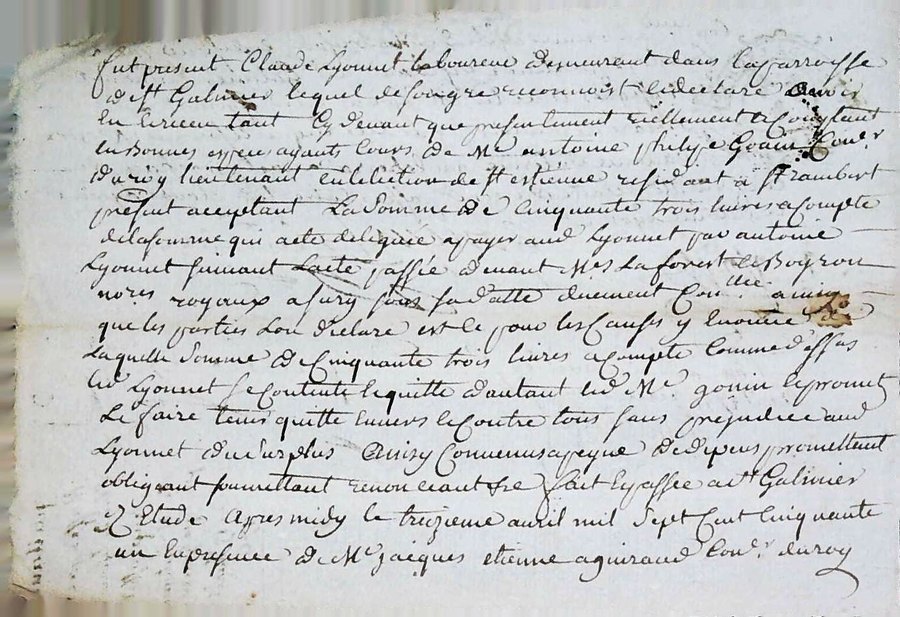 fut present Claude Lyonnet laboureur demeurant dans la parroisse
de st Galmier lequel de son gre reconnoist et declare avoir
eu et receu tant cy devant que presentement reellement et comptant
en bonnes especes ayants cours de Me antoine philipe Gonin Conr
du roy lieutenant en lelection de st estienne residant à st rambert
présent acceptant La Somme de Cinquante trois livres a compte
de la somme qui a ete deleguée a payer aud Lyonnet par antoine
Lyonnet suivant Lacte passée devant Mes Laforest et Boyron
nores royaux a sury sous sa datte duement Conllée
que les parties Lon declare est le pour les Causes y Enoncée
Laquelle Somme de Cinquante trois livres a compte Comme dessus
led Lyonnet se contente et quitte dautant led Me gonin et promet
Le faire tenir quitte Envers et Contre tous sans prejudice aud
Lyonnet du Surplus Ainsy Convenus a peyne de depens promettent
obligeant soumettant renonceant &re fait et passée a st Galmier
Etude apres midy le treizieme avril mil Sept Cent Cinquante
un En presence de Me jacques etienne aguiraud Conr du roy